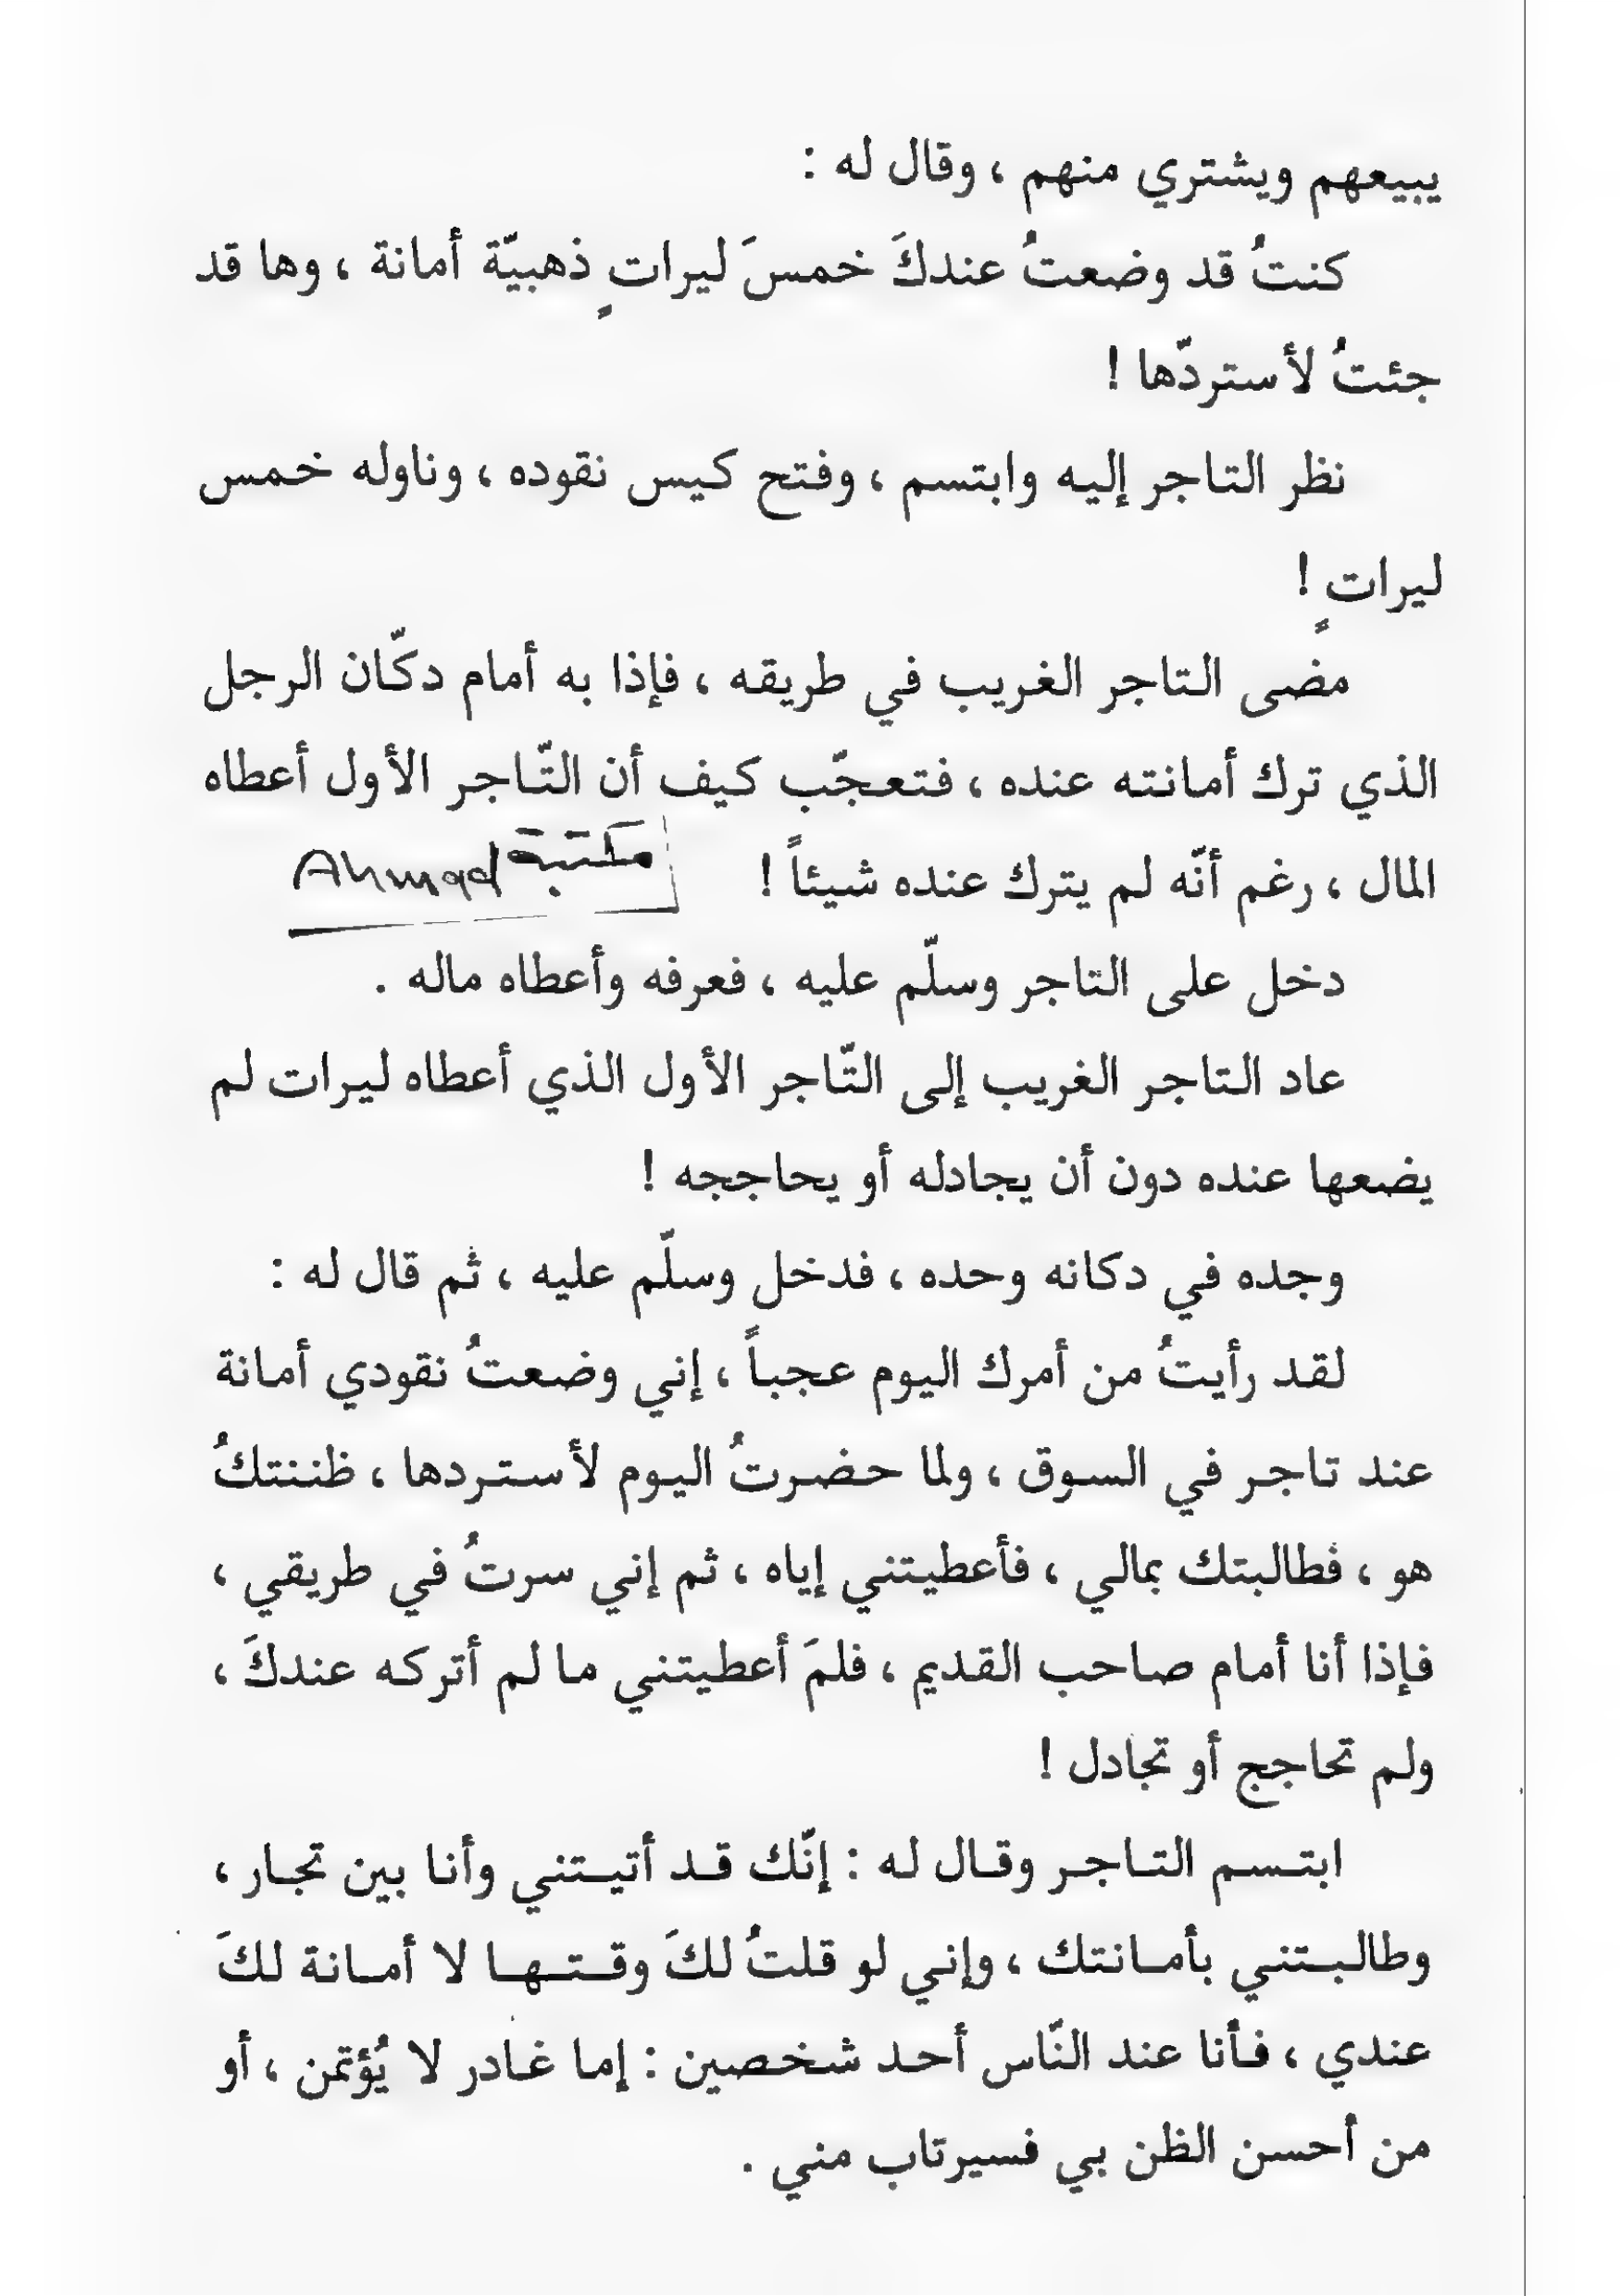 يبيعهم ويشتري منهم ، وقال له :
كنتُ قد وضعتُ عندكَ خمسَ ليراتٍ ذهبيّة أمانة ، وها قد
جئتُ لأستردّها !
نظر التاجر إليه وابتسم ، وفتح كيس نقوده ، وناوله خمس
ليراتٍ !
مضى التاجر الغريب في طريقه ، فإذا به أمام دكّان الرجل
الذي ترك أمانته عنده ، فتعجّب كيف أن التّاجر الأول أعطاه
المال ، رغم أنّه لم يترك عنده شيئاً !
مكتبة Ahmad
دخل على التاجر وسلّم عليه ، فعرفه وأعطاه ماله .
عاد التاجر الغريب إلى التّاجر الأول الذي أعطاه ليرات لم
يضعها عنده دون أن يجادله أو يحاججه !
وجده في دكانه وحده ، فدخل وسلّم عليه ، ثم قال له :
لقد رأيتُ من أمرك اليوم عجباً ، إني وضعتُ نقودي أمانة
عند تاجر في السوق ، ولما حضرتُ اليوم لأستردها ، ظننتكُ
هو ، فطالبتك بمالي ، فأعطيتني إياه ، ثم إني سرتُ في طريقي ،
فإذا أنا أمام صاحب القديم ، فلمَ أعطيتني ما لم أتركه عندكَ ،
ولم تحاجج أو تجادل !
ابتسم التاجر وقال له : إنّك قد أتيتني وأنا بين تجار ،
وطالبتني بأمانتك ، وإني لو قلتُ لكَ وقتها لا أمانة لكَ
عندي ، فأنا عند النّاس أحد شخصين : إما غادر لا يُؤتمن ، أو
من أحسن الظن بي فسيرتاب مني .